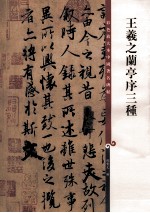 王羲之蘭亭序三種
由今之視昔悲夫故列
叙時人錄其所述雖世殊事
異所以興懷其致一也後之攬
者亦將有感於斯